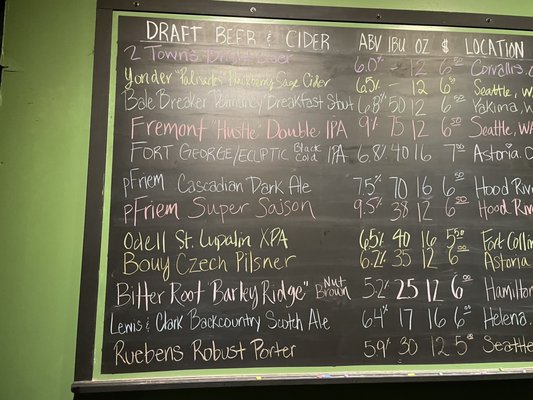 DRAFT BEER & CIDER ABV IBU OZ $ LOCATION
2 Towns Bright Cider 6.0% - 12 6.00 Corvallis,
Yonder "Palisades" Blackberry Sage Cider 6.5% - 12 6. Seattle, WA
Bale Breaker Dormancy Breakfast Stout 6.8% 50 12 6. Yakima, W
Fremont "Hustle" Double IPA 9% 75 12 6.50 Seattle, WA
FORT GEORGE/ECLIPTIC Black Cold IPA 6.8% 40 16 7.00 Astoria, O
pFriem Cascadian Dark Ale 7.5% 70 16 6.50 Hood River
pFriem Super Saison 9.5% 38 12 6.50 Hood River
Odell St. Lupalin XPA 6.5% 40 16 5.50 Fort Collin
Bouy Czech Pilsner 6.2% 35 12 6.00 Astoria
Bitter Root "Barley Ridge" Nut Brown 5.2% 25 12 6.00 Hamilton
Lewis & Clark Backcountry Scotch Ale 6.4% 17 16 6.00 Helena,
Ruebens Robust Porter 5.9% 30 12 5.50 Seattle